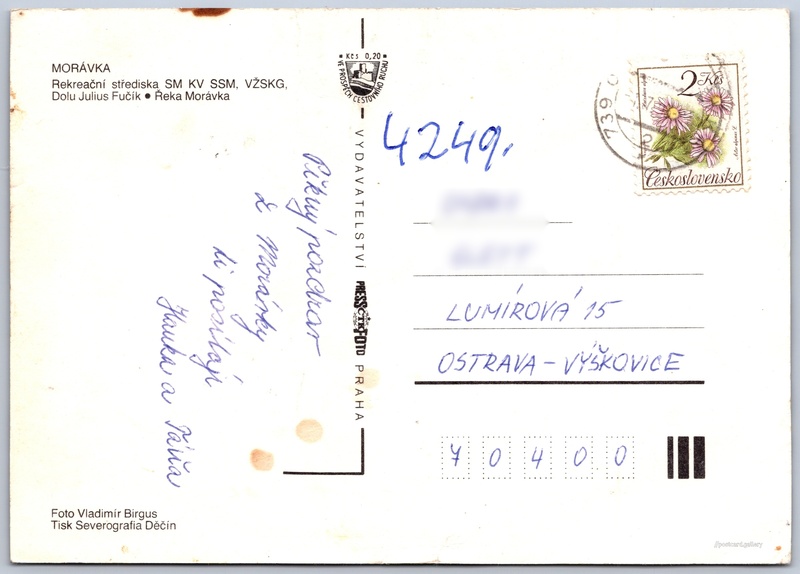 MORÁVKA
Rekreační střediska SM KV SSM, VŽSKG,
Dolu Julius Fučík ● Řeka Morávka
Kčs 0,20
VE PROSPĚCH CESTOVNÍHO RUCHU
2 Kčs
Československo
739
4249.
Pěkný pozdrav
z Morávky
ti posílají
Hanka a Táňa
VYDAVATELSTVÍ PRESSFOTO PRAHA
ČTK
LUMÍROVÁ 15
OSTRAVA – VÝŠKOVICE
7 0 4 0 0
Foto Vladimír Birgus
Tisk Severografia Děčín
@postcard.gallery